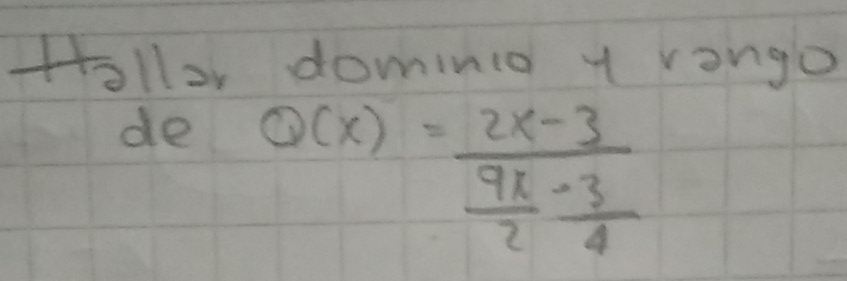 Hallar dominio y rango
de Q(x) = 2x-3
9x - 3
2 4